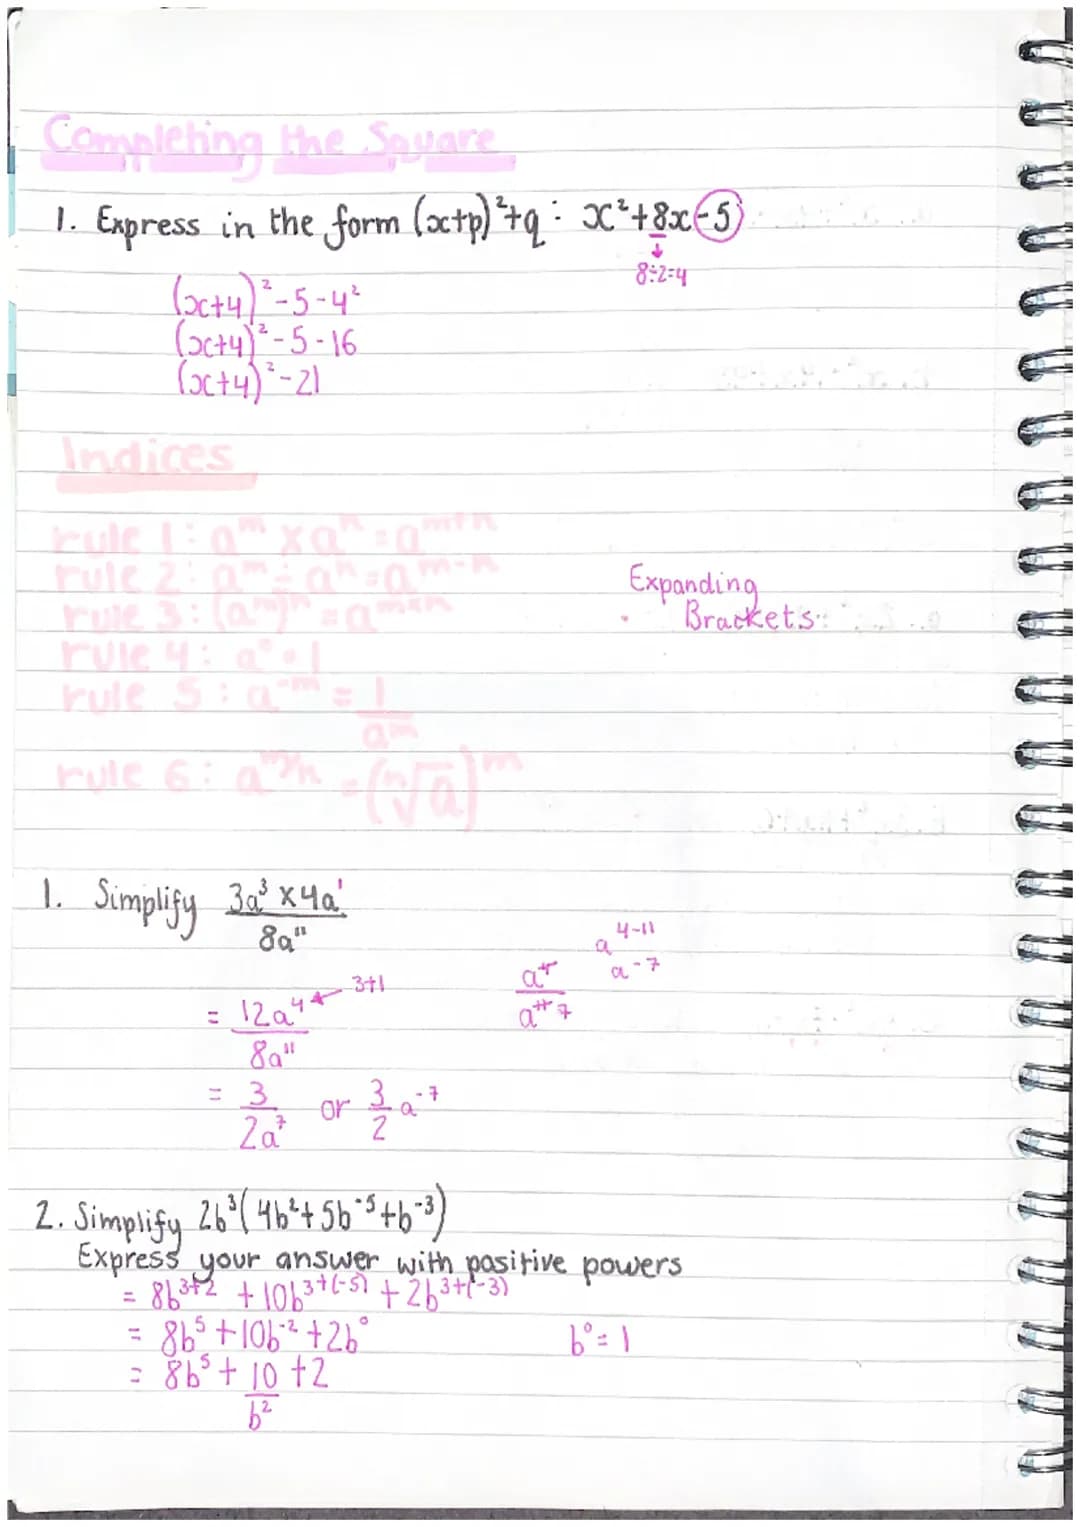 Completing the Square
1. Express in the form (x+p)²+q : x²+8x-5
8÷2=4
(x+4)²-5-4²
(x+4)²-5-16
(x+4)²-21
Indices
rule 1: aᵐ x aⁿ = aᵐ⁺ⁿ
rule 2: aᵐ ÷ aⁿ = aᵐ⁻ⁿ
rule 3: (aᵐ)ⁿ = aᵐˣⁿ
rule 4: a° = 1
rule 5: a⁻ᵐ = 1/aᵐ
rule 6: a^m/n = (ⁿ√a)ᵐ
Expanding
Brackets
1. Simplify 3a³ x 4a¹ / 8a¹¹
= 12a⁴ / 8a¹¹
3+1
= 3/2a⁷ or 3/2 a⁻⁷
a⁴ / a¹¹ 7
a⁴⁻¹¹
a⁻⁷
2. Simplify 2b³(4b²+5b⁻⁵+b⁻³)
Express your answer with positive powers
= 8b³⁺² + 10b³⁺⁽⁻⁵⁾ + 2b³⁺⁽⁻³⁾
= 8b⁵ + 10b⁻² + 2b°
b° = 1
= 8b⁵ + 10/b² + 2